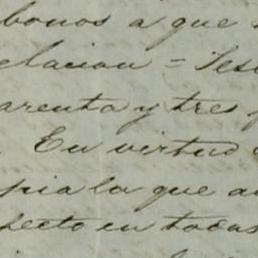 bonos a que
elacion = Tes
arenta y tres
En virtud
pia la que a
pecto en todas